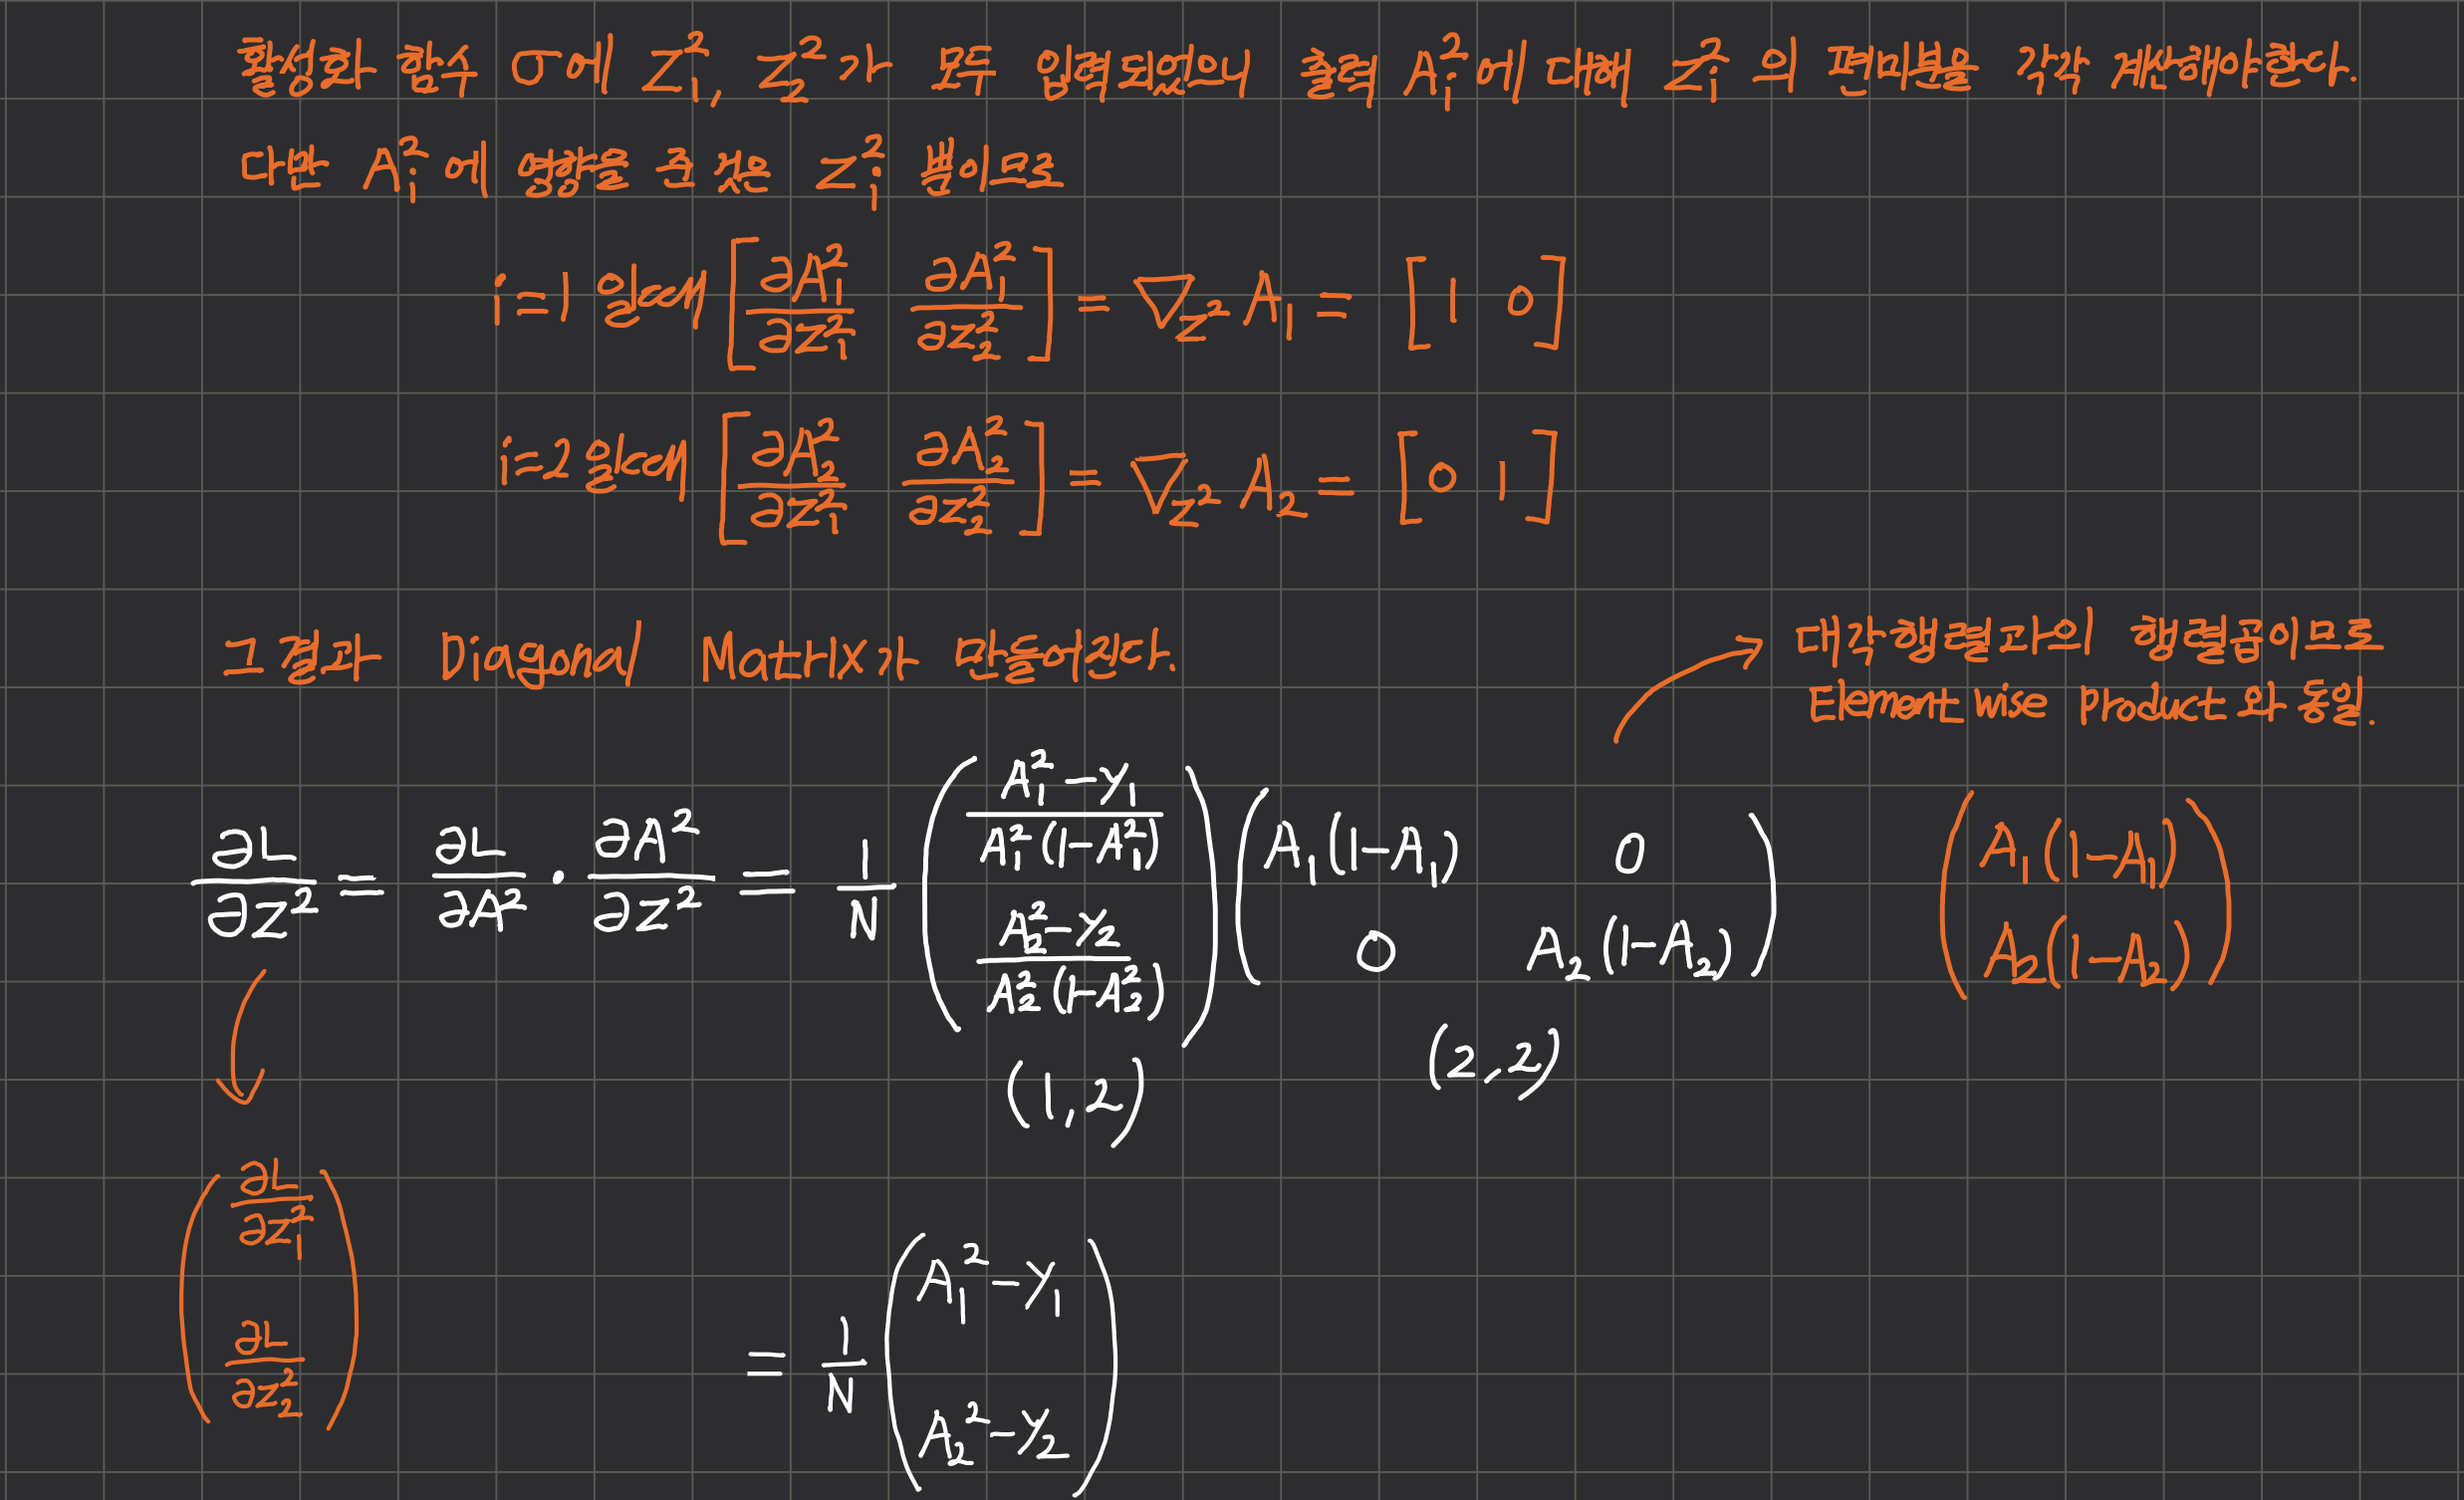 활성화 함수 σ에 Z₁², Z₂²가 모두 입력되었으니 출력 Aᵢ²에 대해 Zᵢ²의 편미분을 각각 계산해야 한다.
다만 Aᵢ²에 영향을 주는 것은 Zᵢ² 뿐이므로
i=1 일때 [∂A₁²/∂Z₁² ∂A₁²/∂Z₂²] = ∇_Z² A₁ = [1 0]
i=2일때 [∂A₂²/∂Z₁² ∂A₂²/∂Z₂²] = ∇_Z² A₂ = [0 1]
그 결과 Diagonal Matrix가 만들어진다.
대각행렬과의 행렬곱이므로
Element wise product와 동일.
∂L/∂Z² = ∂L/∂A² · ∂A²/∂Z² = 1/N ( (A₁²-Y₁)/(A₁²(1-A₁²)) (A₂²-Y₂)/(A₂²(1-A₂²)) ) ( A₁(1-A₁) 0 0 A₂(1-A₂) ) ( A₁(1-A₁) A₂(1-A₂) )
(1,2) (2,2)
( ∂L/∂Z₁² ∂L/∂Z₂² )
= 1/N ( A₁²-Y₁ A₂²-Y₂ )